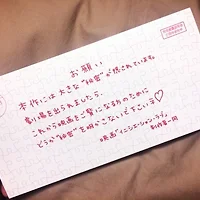 お願い
本作には大きな“秘密”が隠されています。
劇場を出られましたら、
これから映画をご覧になる方のために
どうか“秘密”を明かさないで下さい♡
映画『イニシエーション・ラブ』
製作者一同